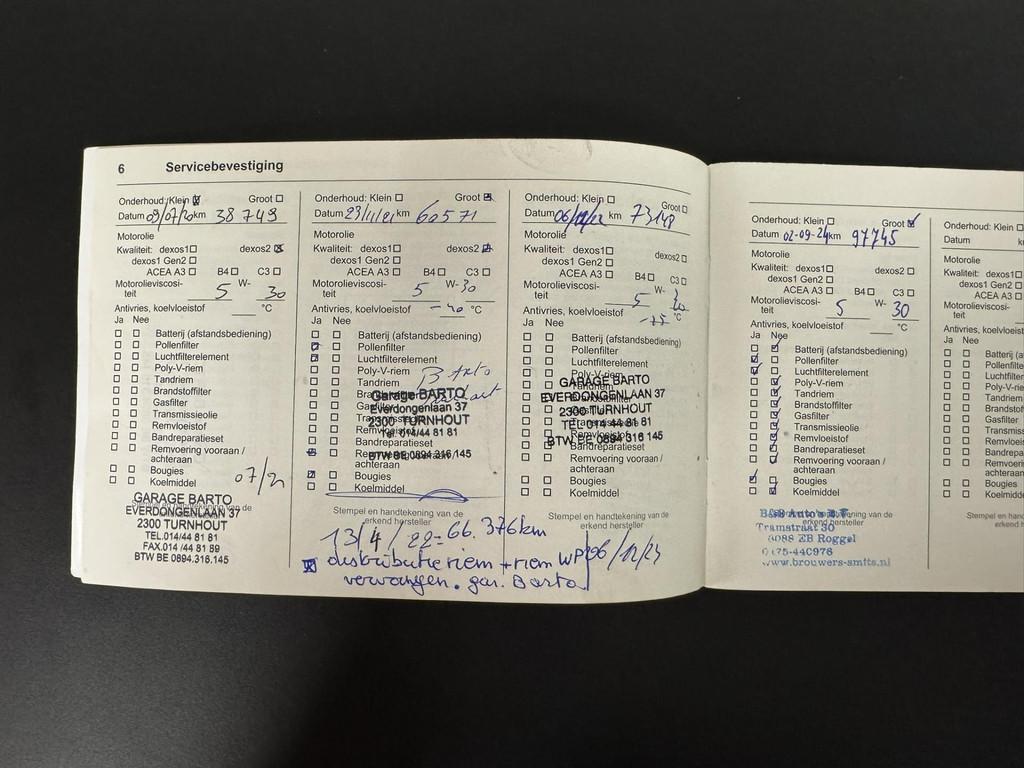 6 Servicebevestiging
Onderhoud: Klein ☒ Groot ☐
Datum 09/07/20 km 38 749
Motorolie
Kwaliteit: dexos1 ☐ dexos2 ☒
dexos1 Gen2 ☐
ACEA A3 ☐ B4 ☐ C3 ☐
Motorolieviscosi- 5 W- 30
teit
Antivries, koelvloeistof °C
Ja Nee
☐ ☐ Batterij (afstandsbediening)
☐ ☐ Pollenfilter
☐ ☐ Luchtfilterelement
☐ ☐ Poly-V-riem
☐ ☐ Tandriem
☐ ☐ Brandstoffilter
☐ ☐ Gasfilter
☐ ☐ Transmissieolie
☐ ☐ Remvloeistof
☐ ☐ Bandreparatieset
☐ ☐ Remvoering vooraan /
achteraan
☐ ☐ Bougies
☐ ☐ Koelmiddel
GARAGE BARTO
EVERDONGENLAAN 37
2300 TURNHOUT
TEL.014/44 81 81
FAX.014/44 81 89
BTW BE 0894.316.145
Onderhoud: Klein ☐ Groot ☒
Datum 23/11/21 km 60571
Motorolie
Kwaliteit: dexos1 ☐ dexos2 ☒
dexos1 Gen2 ☐
ACEA A3 ☐ B4 ☐ C3 ☐
Motorolieviscosi- 5 W- 30
teit
Antivries, koelvloeistof -40 °C
Ja Nee
☐ ☐ Batterij (afstandsbediening)
☒ ☐ Pollenfilter
☒ ☐ Luchtfilterelement
☐ ☐ Poly-V-riem
☐ ☐ Tandriem
Barto
Garage BARTO
Everdongenlaan 37
2300 TURNHOUT
Tel. 014/44 81 81
☐ ☐ Bandreparatieset
BTW BE 0894.316.145
achteraan
☒ ☐ Bougies
☐ ☐ Koelmiddel
Stempel en handtekening van de
erkend hersteller
13/4/22 = 66.376km
☒ distributieriem + riem WP
vervangen. gar. Barto
Onderhoud: Klein ☐ Groot ☐
km 73148
Motorolie
Kwaliteit: dexos1 ☐ dexos2 ☐
dexos1 Gen2 ☐
ACEA A3 ☐ B4 ☐ C3 ☐
Motorolieviscosi- 5 W- 30
teit
Antivries, koelvloeistof °C
Ja Nee
☐ ☐ Batterij (afstandsbediening)
☐ ☐ Pollenfilter
☐ ☐ Luchtfilterelement
☐ ☐ Poly-V-riem
GARAGE BARTO
EVERDONGENLAAN 37
2300 TURNHOUT
TEL 014 44 81 81
BTW BE 0894 316 145
☐ ☐ Bandreparatieset
☐ ☐ Remvoering vooraan /
achteraan
☐ ☐ Bougies
☐ ☐ Koelmiddel
Stempel en handtekening van de
erkend hersteller
Onderhoud: Klein ☐ Groot ☑
Datum 02-09-24 km 97745
Motorolie
Kwaliteit: dexos1 ☐ dexos2 ☐
dexos1 Gen2 ☐
ACEA A3 ☐ B4 ☐ C3 ☐
Motorolieviscosi- 5 W- 30
teit
Antivries, koelvloeistof °C
Ja Nee
☐ ☑ Batterij (afstandsbediening)
☑ ☐ Pollenfilter
☑ ☐ Luchtfilterelement
☐ ☑ Poly-V-riem
☐ ☑ Tandriem
☐ ☑ Brandstoffilter
☐ ☑ Gasfilter
☐ ☑ Transmissieolie
☐ ☑ Remvloeistof
☐ ☑ Bandreparatieset
☐ ☑ Remvoering vooraan /
achteraan
☑ ☐ Bougies
☐ ☑ Koelmiddel
Tramstraat 30
6088 EB Roggel
0475-440976
www.brouwers-smits.nl
Onderhoud: Klein ☐
Datum
Motorolie
Kwaliteit: dexos1 ☐
dexos1 Gen2 ☐
ACEA A3 ☐
Motorolieviscosi-
teit
Antivries, koelvloeis
Ja Nee
☐ ☐ Batterij (a
☐ ☐ Pollenfilte
☐ ☐ Luchtfilte
☐ ☐ Poly-V-rie
☐ ☐ Tandriem
☐ ☐ Brandsto
☐ ☐ Gasfilter
☐ ☐ Transmiss
☐ ☐ Remvloeis
☐ ☐ Bandrepa
☐ ☐ Remvoerin
achteraan
☐ ☐ Bougies
☐ ☐ Koelmidde
Stempel en hand